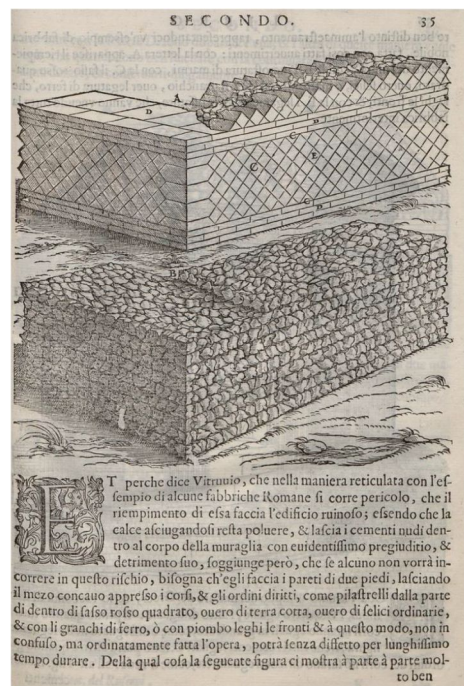 SECONDO. 35
A
D
D
C
C
E
C
D
B
ET perche dice Vitruuio, che nella maniera reticulata con l'es-
sempio di alcune fabbriche Romane si corre pericolo, che il
riempimento di essa faccia l'edificio ruinoso; essendo che la
calce asciugandosi resta poluere, & lascia i cementi nudi den-
tro al corpo della muraglia con euidentissimo pregiuditio, &
detrimento suo, soggiunge però, che se alcuno non vorrà in-
correre in questo rischio, bisogna ch'egli faccia i pareti di due piedi, lasciando
il mezo concauo appresso i corsi, & gli ordini diritti, come pilastrelli dalla parte
di dentro di sasso rosso quadrato, ouero di terra cotta, ouero di selici ordinarie,
& con li granchi di ferro, ò con piombo leghi le fronti & à questo modo, non in
confuso, ma ordinatamente fatta l'opera, potrà senza diffetto per lunghissimo
tempo durare. Della qual cosa la seguente figura ci mostra à parte à parte mol-
to ben